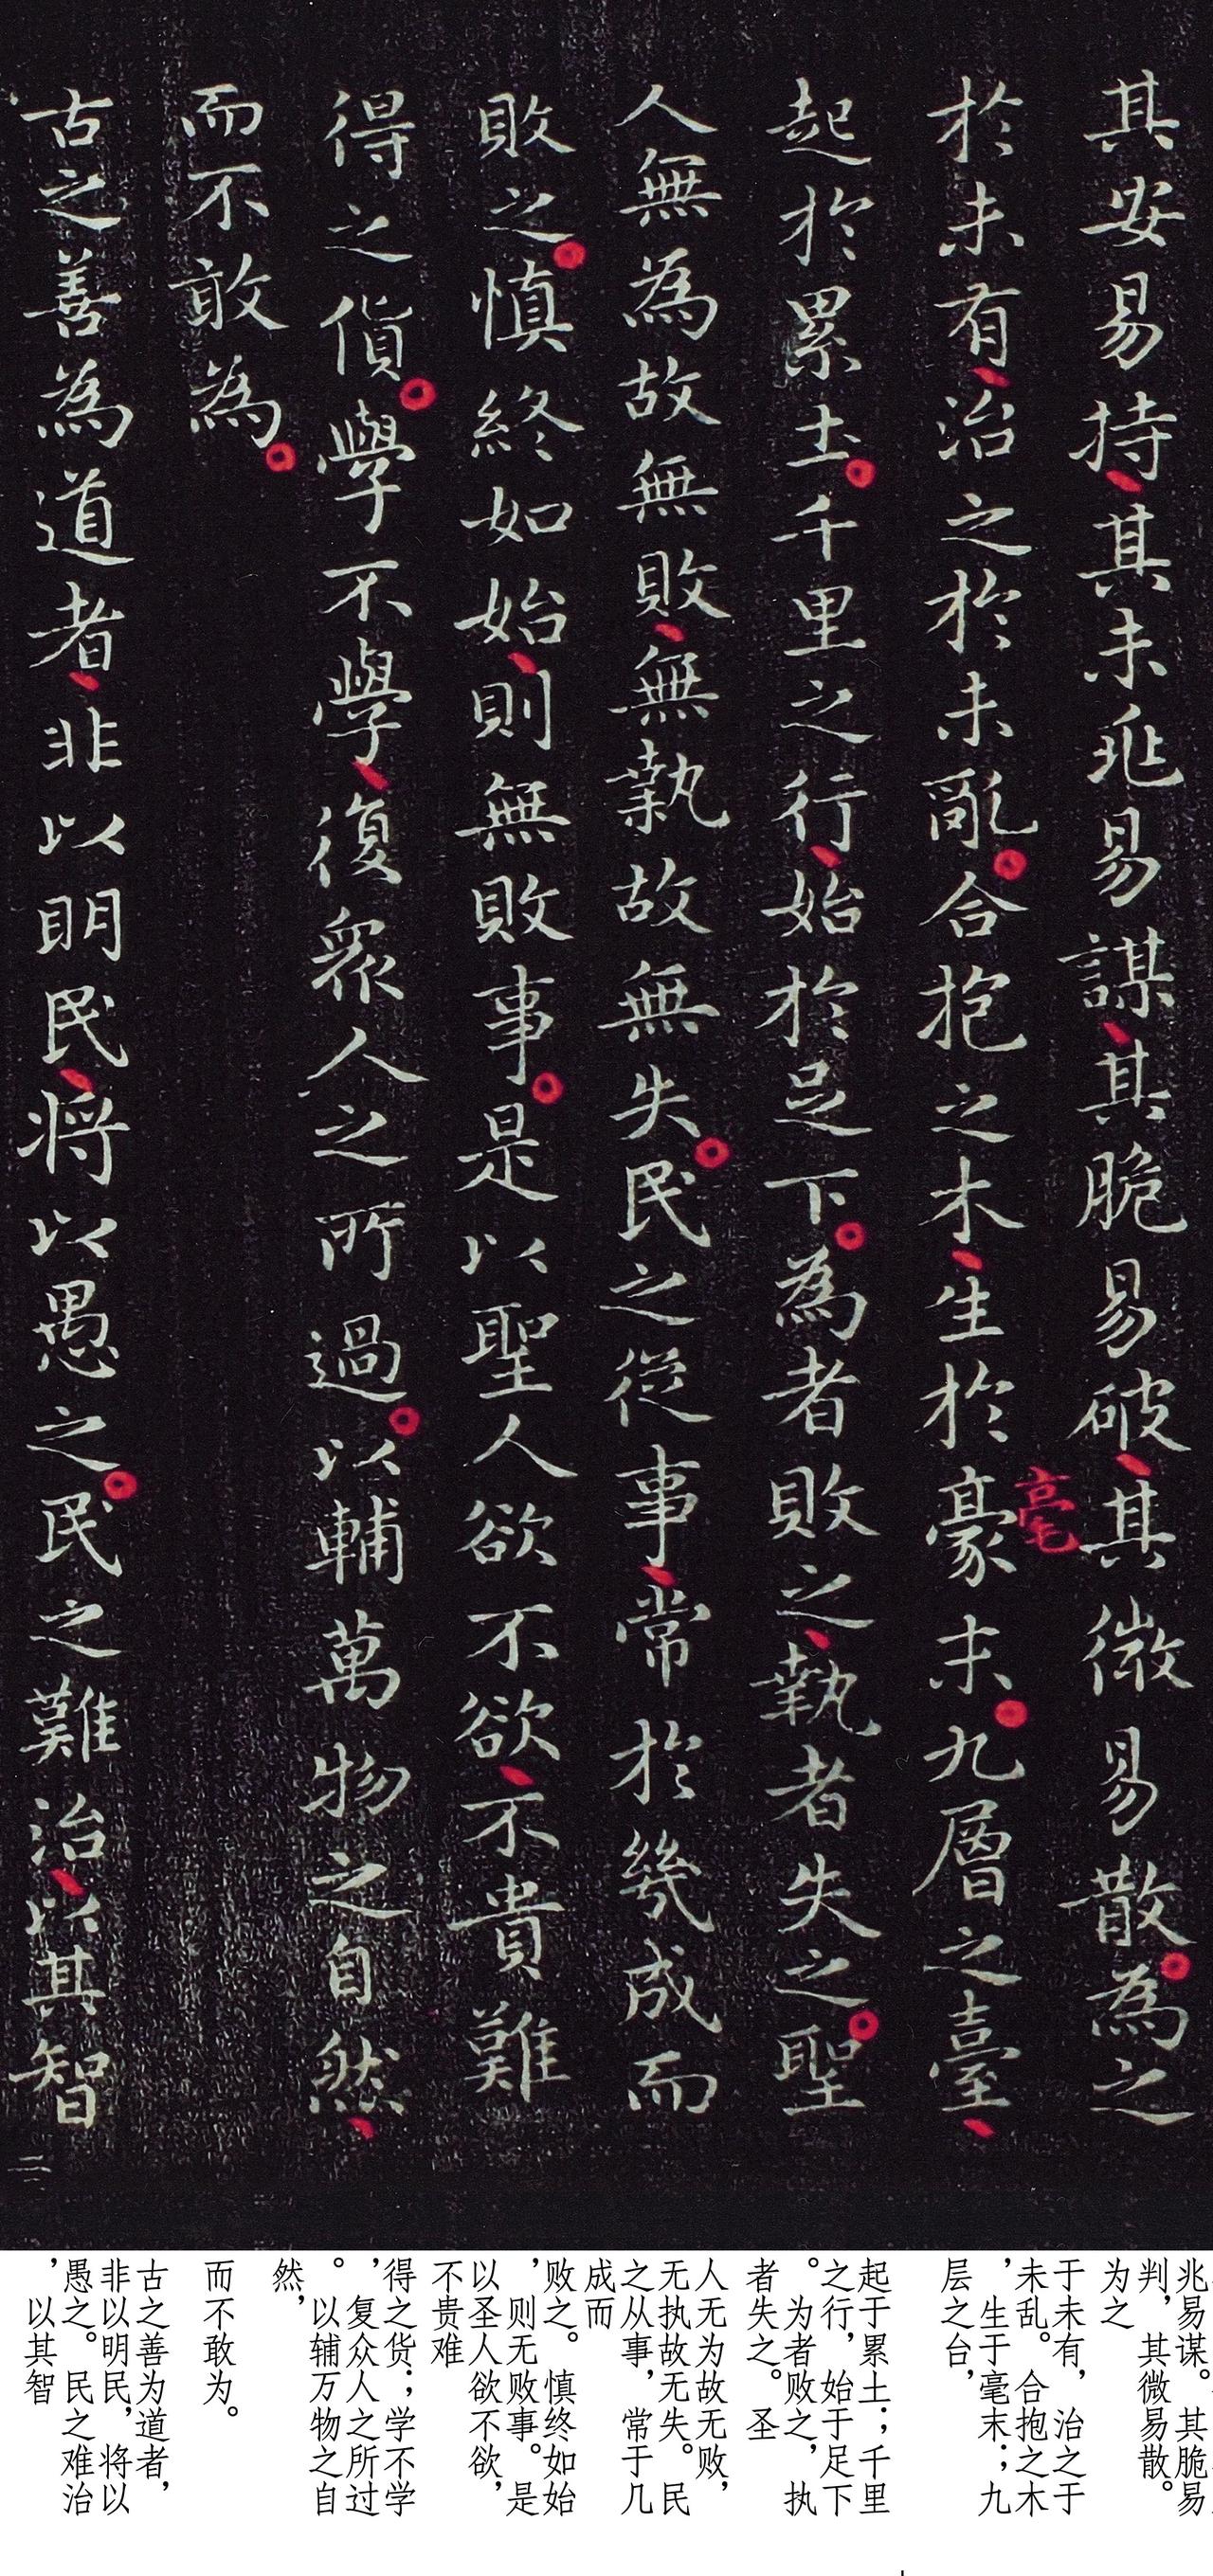 其安易持其未兆易謀其脆易破其微易散為之
於未有治之於未亂合抱之木生於豪末九層之臺
毫
起於累土千里之行始於足下為者敗之執者失之聖
人無為故無敗無執故無失民之從事常於幾成而
敗之慎終如始則無敗事是以聖人欲不欲不貴難
得之貨學不學復衆人之所過以輔萬物之自然
而不敢為
古之善為道者非以明民将以愚之民之難治以其智
二
兆易谋。其脆易
判，其微易散。
为之
于未有，治之于
未乱。合抱之木
，生于毫末；九
层之台，
起于累土；千里
之行，始于足下
。为者败之，执
者失之。圣
人无为故无败，
无执故无失。民
之从事，常于几
成而
败之。慎终如始
，则无败事。是
以圣人欲不欲，
不贵难
得之货；学不学
，复众人之所过
。以辅万物之自
然，
而不敢为。
古之善为道者，
非以明民，将以
愚之。民之难治
，以其智